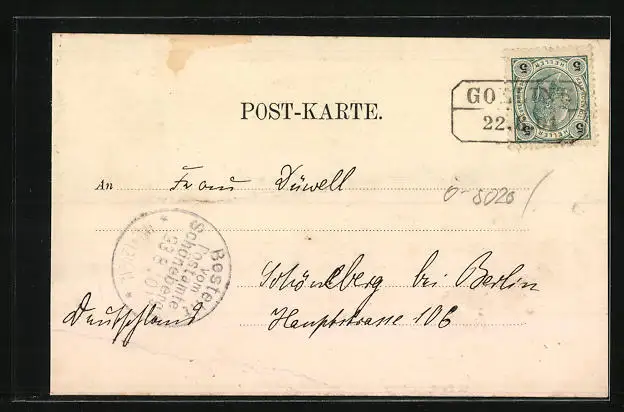 5 HELLER 5
GO
22.
POST-KARTE.
An Frau Düwell
0-8020
Bestellt
vom
Postamte
Schöneberg
23 8
Schöneberg bei Berlin
Deutschland Hauptstrasse 106